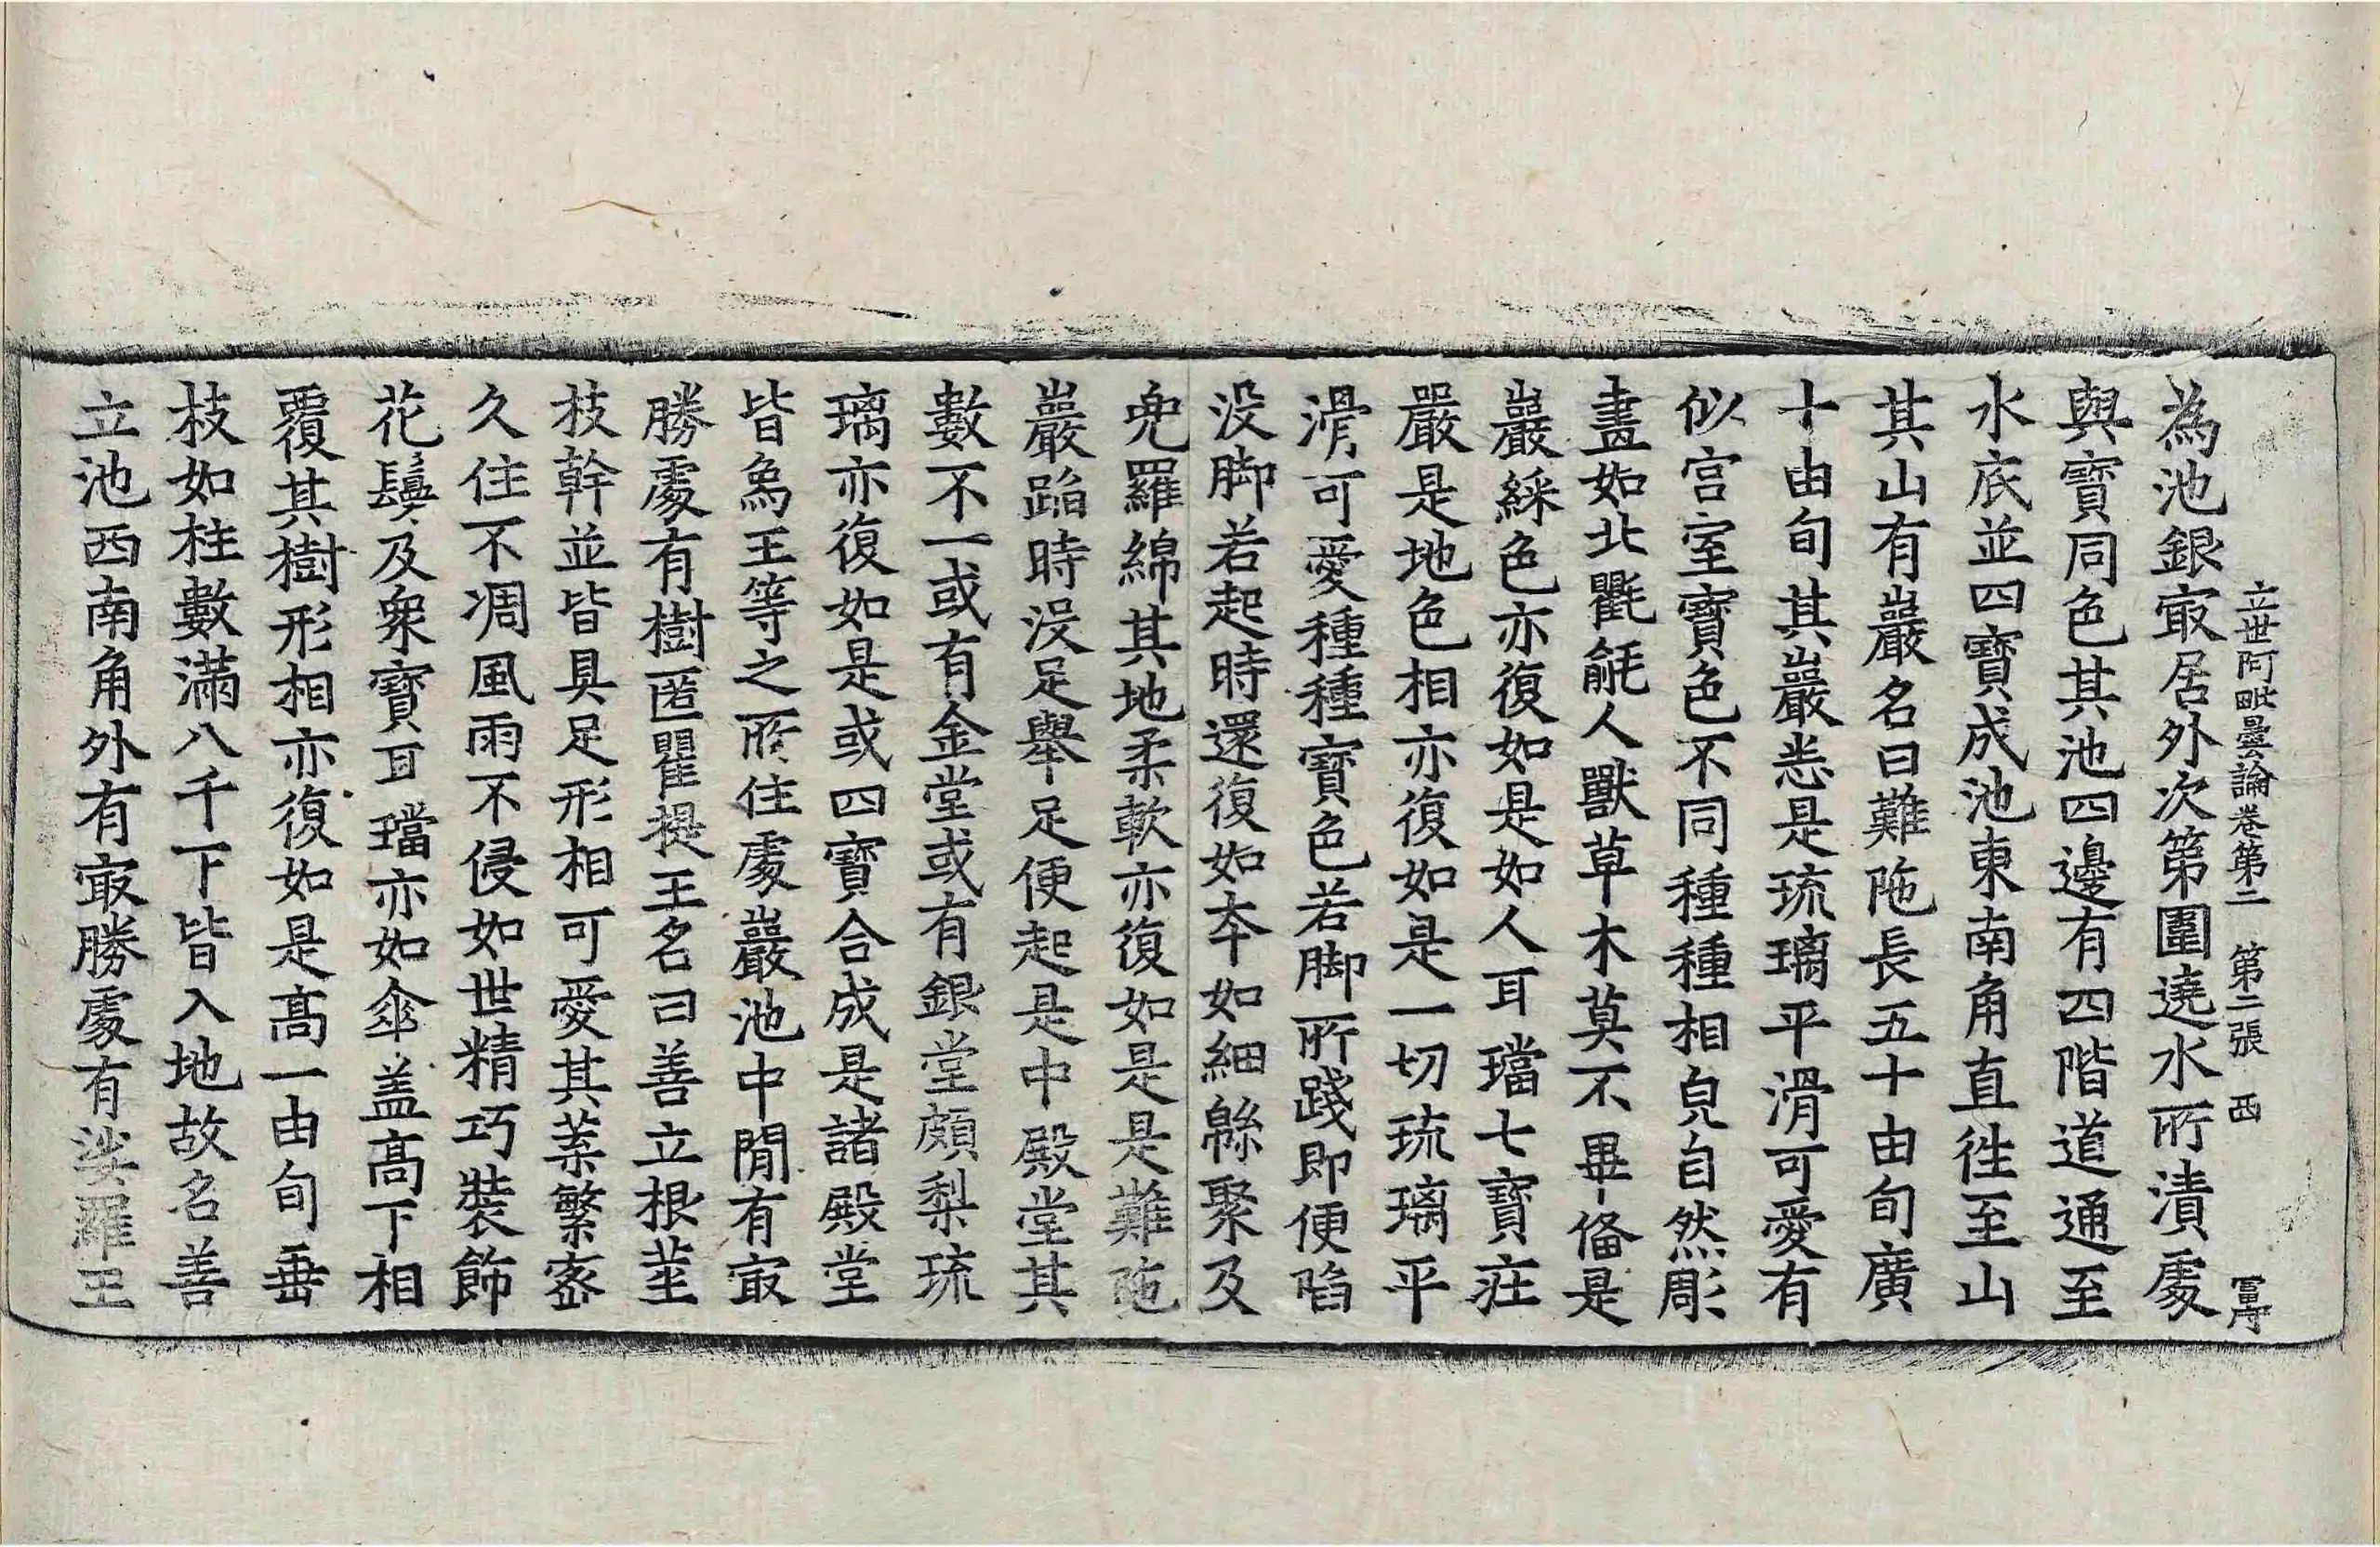 立世阿毗曇論卷第二 第二張 西 冨守
為池銀㝡居外次第圍遶水所漬處
與寶同色其池四邊有四階道通至
水底並四寶成池東南角直往至山
其山有巖名曰難陁長五十由旬廣
十由旬其巖悉是琉璃平滑可愛有
似宫室寶色不同種種相皃自然彫
畫如北氍毹人獸草木莫不畢俻是
巖綵色亦復如是如人耳璫七寶莊
嚴是地色相亦復如是一切琉璃平
滑可愛種種寶色若脚所踐即便陷
没脚若起時還復如夲如細緜聚及
兠羅綿其地柔軟亦復如是是難陁
巖蹈時没足舉足便起是中殿堂其
數不一或有金堂或有銀堂頗梨琉
璃亦復如是或四寶合成是諸殿堂
皆為王等之所住處巖池中閒有㝡
勝處有樹匿瞿提王名曰善立根莖
枝幹並皆具足形相可愛其葉繁密
久住不凋風雨不侵如世精巧裝飾
花鬘及衆寶耳璫亦如傘盖高下相
覆其樹形相亦復如是高一由旬垂
枝如柱數滿八千下皆入地故名善
立池西南角外有㝡勝處有娑羅王